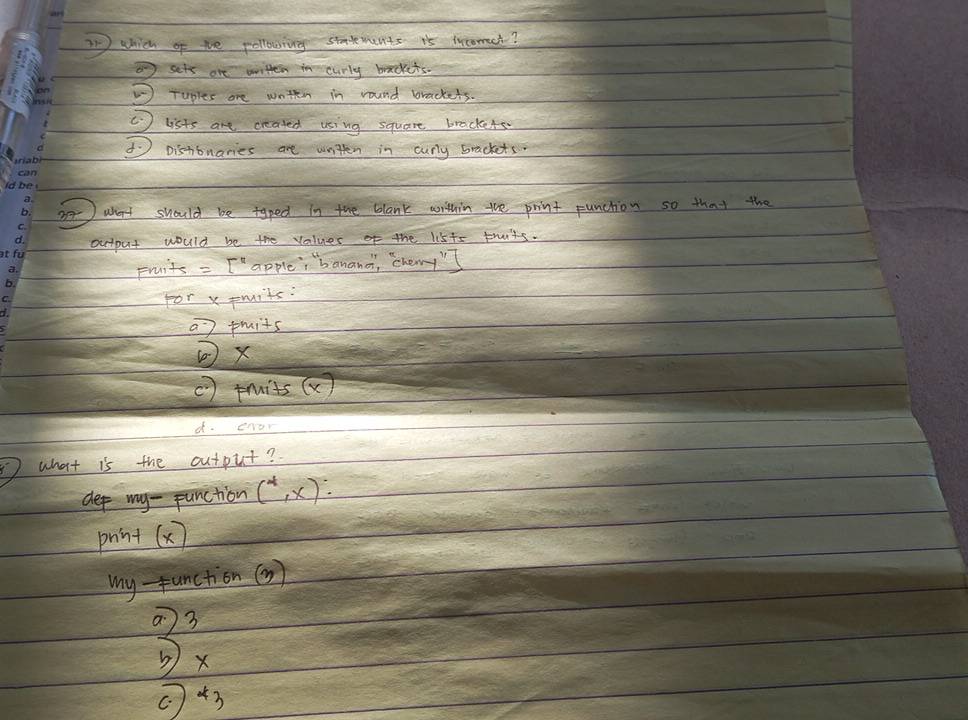 which of the following statements is incorrect?
a) sets are written in curly brackets.
b) Tuples are written in round brackets.
c) Lists are created using square brackets.
d.) Distionaries are written in curly brackets.
37) what should be typed in the blank within the print function so that the
output would be the values of the lists fruits.
Fruits = ["apple", "banana", "cherry"]
For x fruits:
a) fruits
b) x
c) fruits (x)
d. error
what is the output?
def my-function (*, x):
print (x)
my-function (3)
a) 3
b) x
c) *3
an
on
insid
d
ariabl
can
ld be
a.
b.
c.
d.
at fu
a.
b.
c.
d.